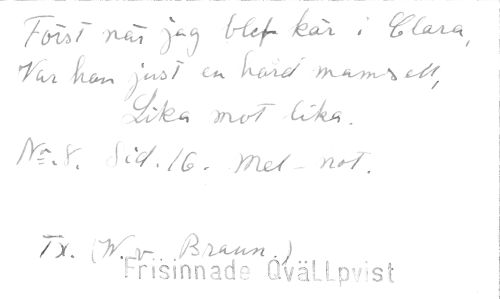 Först när jag blef kär i Clara,
Var hon just en hård mamsell,
Lika mot lika.
No. 8. Sid. 16. Mel-not.
Tx. (W. v. Braun.)
Frisinnade Qvällpvist